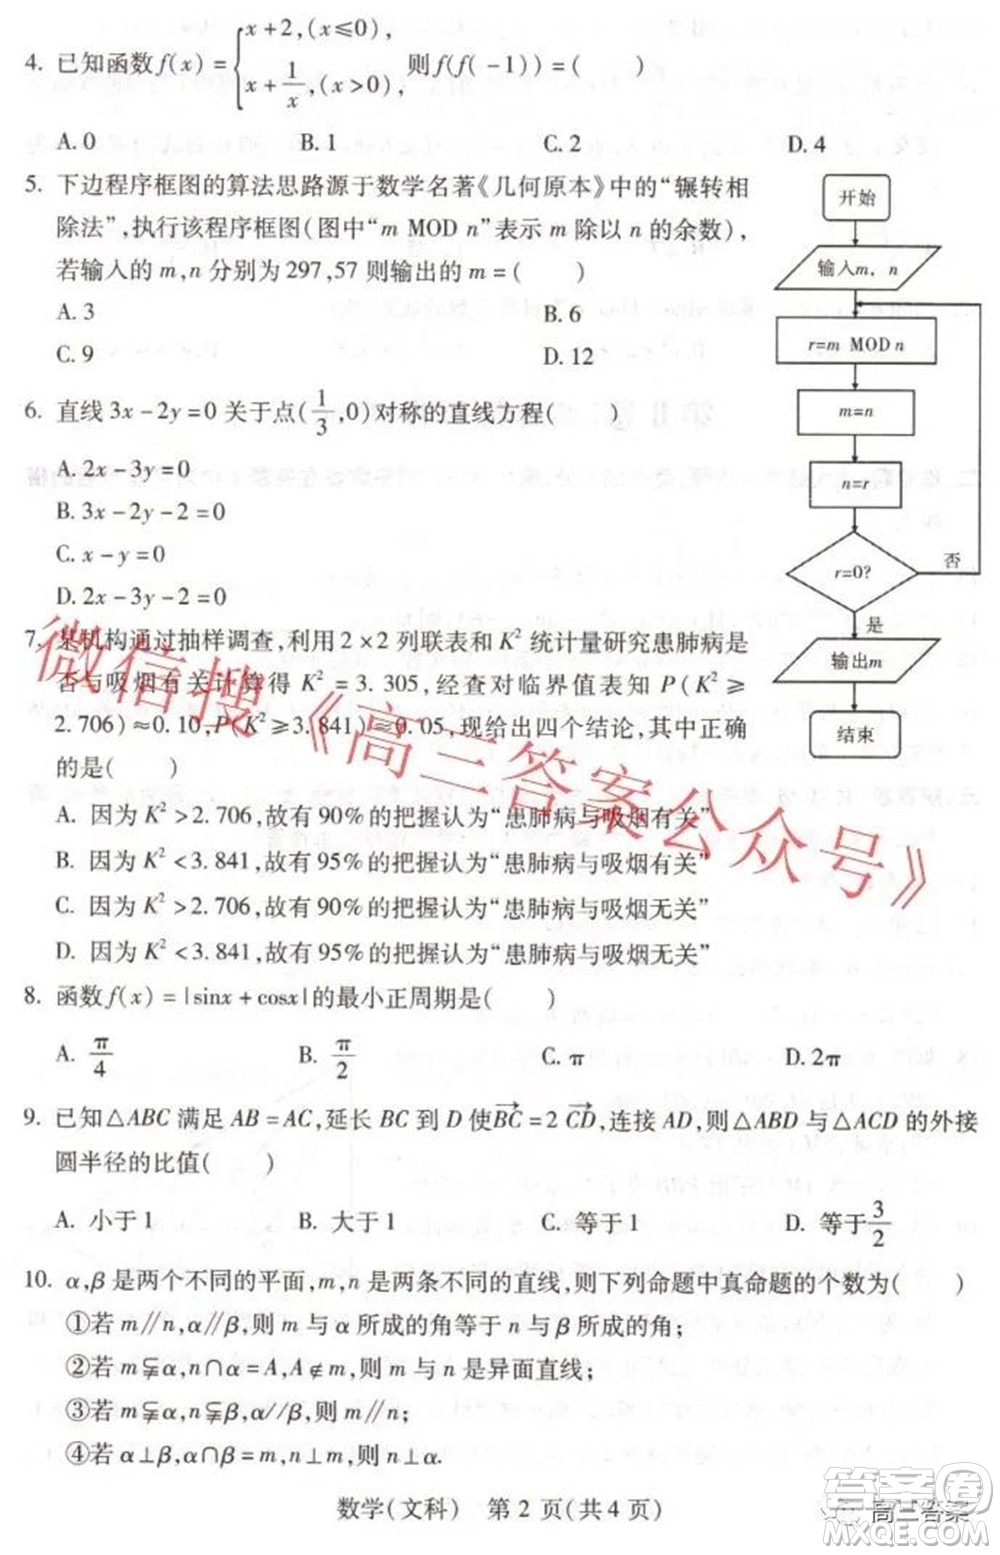 4. 已知函数f(x)={x+2,(x⩽0), x+1/x,(x>0), 则f(f(-1))=( )
A.0 B.1 C.2 D.4
5. 下边程序框图的算法思路源于数学名著《几何原本》中的“辗转相
除法”,执行该程序框图(图中“m MOD n”表示m除以n的余数),
若输入的m,n分别为297,57则输出的m=( )
A.3 B.6
C.9 D.12
开始
输入m, n
r=m MOD n
m=n
n=r
r=0?
否
是
输出m
结束
6. 直线3x-2y=0关于点(1/3,0)对称的直线方程( )
A.2x-3y=0
B.3x-2y-2=0
C.x-y=0
D.2x-3y-2=0
7. 某机构通过抽样调查,利用2×2列联表和K²统计量研究患肺病是
否与吸烟有关计算得K²=3.305,经查对临界值表知P(K²⩾
2.706)≈0.10,P(K²⩾3.841)≈0.05,现给出四个结论,其中正确
的是( )
A. 因为K²>2.706,故有90%的把握认为“患肺病与吸烟有关”
B. 因为K²<3.841,故有95%的把握认为“患肺病与吸烟有关”
C. 因为K²>2.706,故有90%的把握认为“患肺病与吸烟无关”
D. 因为K²<3.841,故有95%的把握认为“患肺病与吸烟无关”
8. 函数f(x)=|sinx+cosx|的最小正周期是( )
A. π/4 B. π/2 C.π D.2π
9. 已知△ABC满足AB=AC,延长BC到D使BC→=2CD→,连接AD,则△ABD与△ACD的外接
圆半径的比值( )
A. 小于1 B. 大于1 C. 等于1 D. 等于3/2
10. α,β是两个不同的平面,m,n是两条不同的直线,则下列命题中真命题的个数为( )
①若m∥n,α∥β,则m与α所成的角等于n与β所成的角;
②若m⫋α,n∩α=A,A∉m,则m与n是异面直线;
③若m⫋α,n⫋β,α∥β,则m∥n;
④若α⊥β,α∩β=m,n⊥m,则n⊥α.
数学(文科) 第2页(共4页)
微信搜《高三答案公众号》
答案卷
高三答案
MXQE.COM